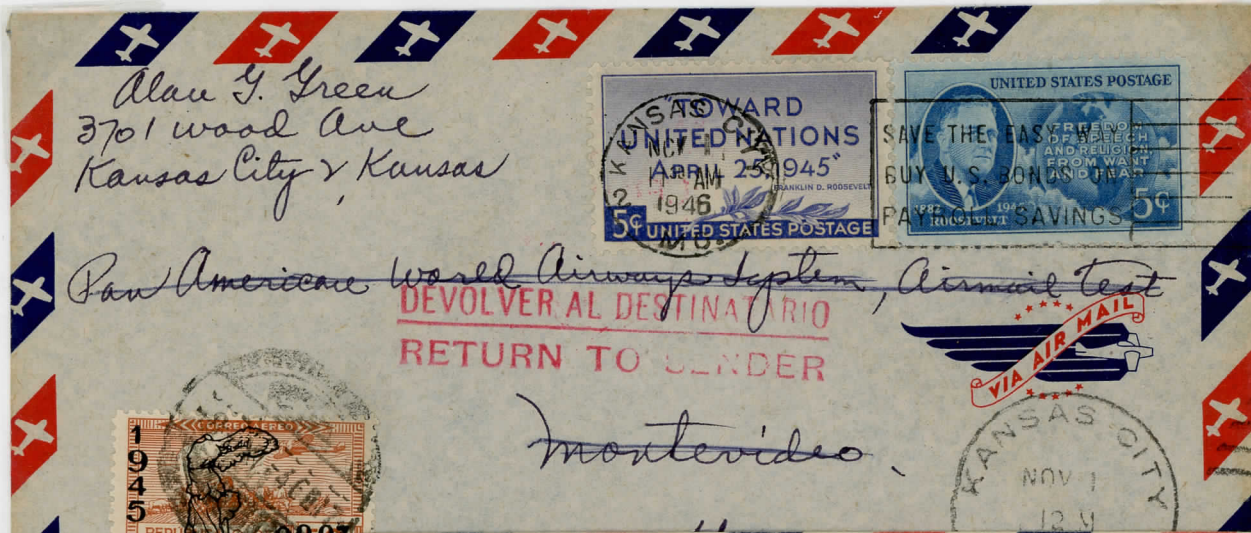 Alan G. Green
3701 Wood Ave
Kansas City 2, Kansas
"TOWARD
UNITED NATIONS
APRIL 25, 1945"
FRANKLIN D. ROOSEVELT
5¢ UNITED STATES POSTAGE
KANSAS CITY
2
NOV 1
AM
1946
MO.
UNITED STATES POSTAGE
FREEDOM
OF SPEECH
AND RELIGION
FROM WANT
AND FEAR
ROOSEVELT
5¢
SAVE THE EASY WAY
BUY U.S. BONDS ON
PAYROLL SAVINGS
Pan American World Airways System, Airmail Test
DEVOLVER AL DESTINATARIO
RETURN TO SENDER
VIA AIR MAIL
Montevideo.
CORREO AEREO
1945
KANSAS CITY
NOV 1
12 M